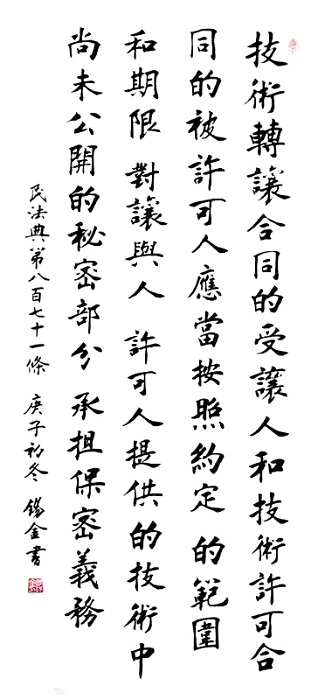 技術轉讓合同的受讓人和技術許可合
同的被許可人應當按照約定 的範圍
和期限 對讓與人 許可人提供的技術中
尚未公開的秘密部分 承担保密義務
民法典第八百七十一條 庚子初冬 錫金書